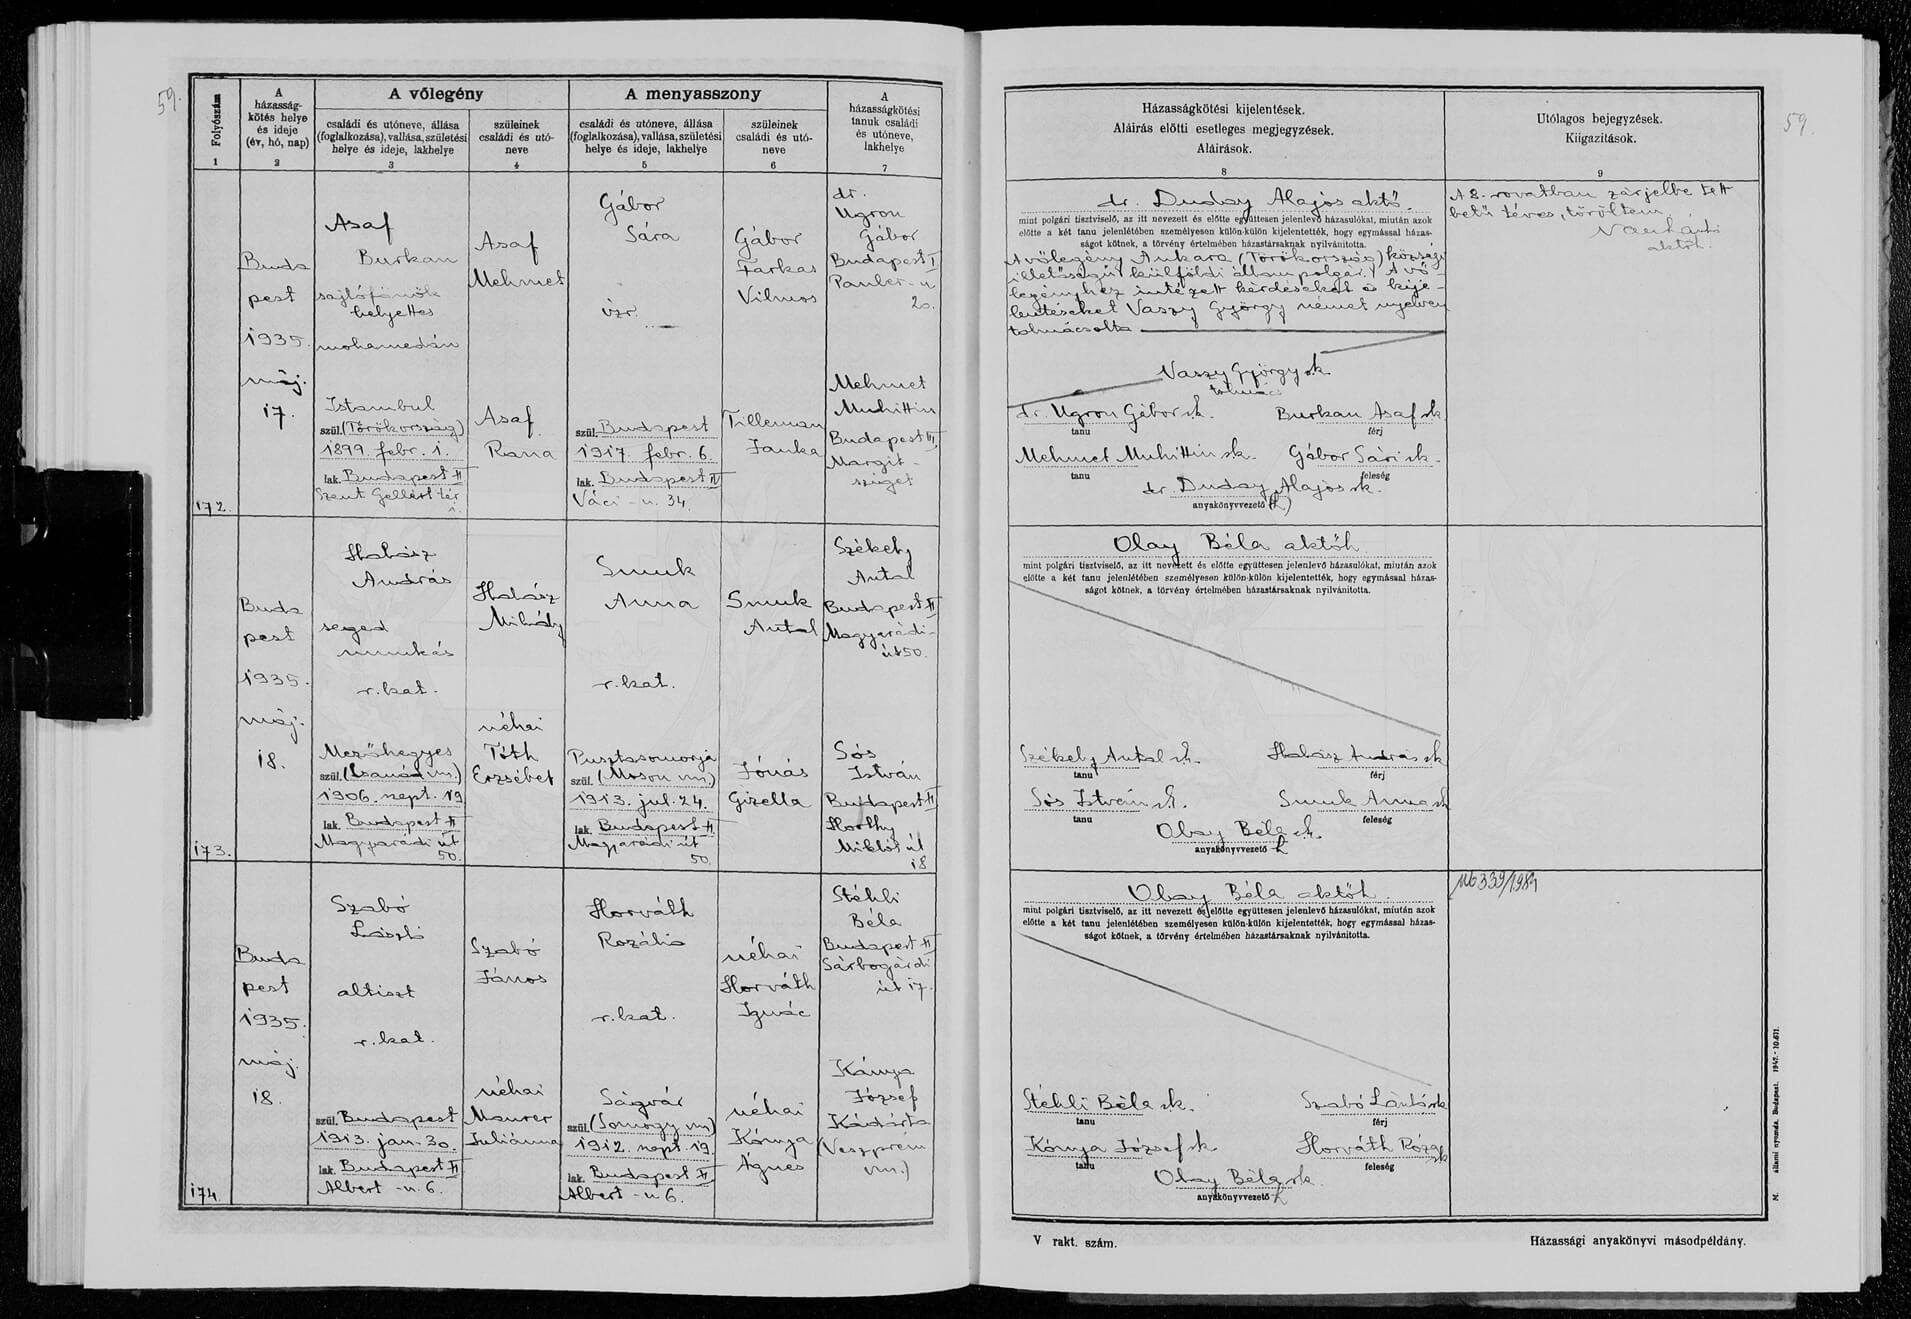 59.
Folyószám
1
A
házasság-
kötés helye
és ideje
(év, hó, nap)
2
A vőlegény
családi és utóneve, állása
(foglalkozása), vallása, születési
helye és ideje, lakhelye
3
szüleinek
családi és utó-
neve
4
A menyasszony
családi és utóneve, állása
(foglalkozása), vallása, születési
helye és ideje, lakhelye
5
szüleinek
családi és utó-
neve
6
A
házasságkötési
tanuk családi
és utóneve,
lakhelye
7
172.
Buda
pest
1935.
máj.
17.
Asaf
Burkan
sajtófőnök
helyettes
mohamedán
Istambul
szül. (Törökország)
1899. febr. 1.
lak. Budapest II
Szent Gellért tér
Asaf
Mehmet
Asaf
Rana
Gábor
Sára
izr.
szül. Budapest
1917. febr. 6.
lak. Budapest IV
Váci-u. 34.
Gábor
Farkas
Vilmos
Tilleman
Janka
dr.
Ugron
Gábor
Budapest I
Pauler-u
20.
Mehmet
Muhittin
Budapest III
Margit-
sziget
173.
Buda
pest
1935.
máj.
18.
Halász
András
segéd
munkás
r. kat.
Mezőhegyes
szül. (Csanád vm.)
1906. szept. 19
lak. Budapest II
Magyarádi út
50.
Halász
Mihály
néhai
Tóth
Erzsébet
Smuk
Anna
r. kat.
Pusztasomorja
szül. (Moson vm.)
1913. jul. 24.
lak. Budapest II
Magyarádi út
50.
Smuk
Antal
Jónás
Gizella
Székely
Antal
Budapest II
Magyarádi-
út 50.
Sós
István
Budapest II
Horthy
Miklós út
18
174.
Buda
pest
1935.
máj.
18.
Szabó
László
altiszt
r. kat.
szül. Budapest
1913. jan. 30.
lak. Budapest II
Albert-u. 6.
Szabó
János
néhai
Maurer
Juliánna
Horváth
Rozália
r. kat.
Ságvár
szül. (Somogy vm)
1912. szept. 19.
lak. Budapest II
Albert-u 6.
néhai
Horváth
Ignác
néhai
Kónya
Ágnes
Stéhli
Béla
Budapest II
Sárbogárdi
út 17.
Kónya
József
Kádárta
(Veszprém
vm.)
59.
Házasságkötési kijelentések.
Aláírás előtti esetleges megjegyzések.
Aláírások.
8
Utólagos bejegyzések.
Kiigazítások.
9
dr. Duday Alajos aktő.
mint polgári tisztviselő, az itt nevezett és előtte együttesen jelenlevő házasulókat, miután azok
előtte a két tanu jelenlétében személyesen külön-külön kijelentették, hogy egymással házas-
ságot kötnek, a törvény értelmében házastársaknak nyilvánította.
A vőlegény Ankara (Törökország) községi
illetőségű külföldi állampolgár. A vő-
legényhez intézett kérdéseket és kije-
lentéseket Vaszy György német nyelven
tolmácsolta
Vaszy György sk.
tolmács
dr. Ugron Gábor sk. Burkan Asaf sk
tanu férj
Mehmet Muhittin sk. Gábor Sári sk.
tanu feleség
dr. Duday Alajos sk.
anyakönyvvezető
A 8. rovatban zárjelbe tett
betű téves, töröltem
aktőh.
Olay Béla aktőh
mint polgári tisztviselő, az itt nevezett és előtte együttesen jelenlevő házasulókat, miután azok
előtte a két tanu jelenlétében személyesen külön-külön kijelentették, hogy egymással házas-
ságot kötnek, a törvény értelmében házastársaknak nyilvánította.
Székely Antal sk. Halász András sk
tanu férj
Sós István sk. Smuk Anna sk
tanu feleség
Olay Béla sk.
anyakönyvvezető
Olay Béla aktőh.
mint polgári tisztviselő, az itt nevezett és előtte együttesen jelenlevő házasulókat, miután azok
előtte a két tanu jelenlétében személyesen külön-külön kijelentették, hogy egymással házas-
ságot kötnek, a törvény értelmében házastársaknak nyilvánította.
Stéhli Béla sk. Szabó László sk
tanu férj
Kónya József sk Horváth Róza sk
tanu feleség
Olay Béla sk.
anyakönyvvezető
339/1984
V rakt. szám.
Házassági anyakönyvi másodpéldány.
M. állami nyomda. Budapest. 1942. - 10.611.